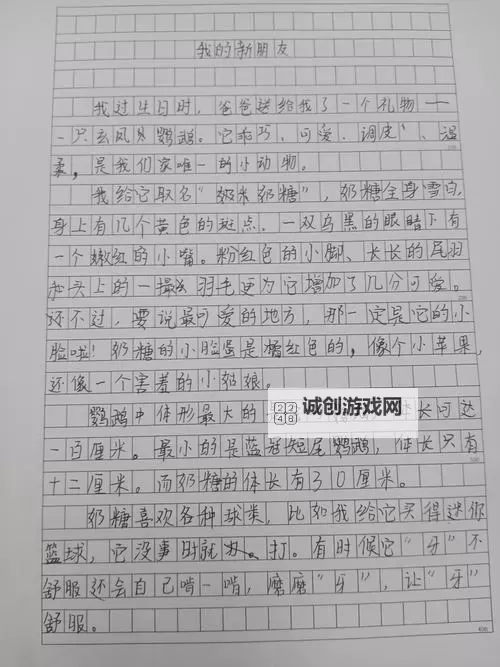 我的新朋友
我过生日时，爸爸送给我了一个礼物—
一只玄凤鹦鹉。它乖巧、可爱、调皮、温
柔，是我们家唯一的小动物。
我给它取名“奶糖”，奶糖全身雪白，
身上有几个黄色的斑点，一双乌黑的眼睛下有
一个嫩红的小嘴。粉红色的小脚、长长的尾羽
和头上的一撮羽毛更为它增加了几分可爱。
还不过，要说最可爱的地方，那一定是它的小
脸啦！奶糖的小脸蛋是橘红色的，像个小苹果，
还像一个害羞的小姑娘。
鹦鹉中体形最大的
长可达
一百厘米。最小的是蓝冠短尾鹦鹉，体长只有
十二厘米。而奶糖的体长有30厘米。
奶糖喜欢各种球类，比如我给它买得迷你
篮球，它没事时就打。有时候它“牙”不
舒服还会自己啃一啃，磨磨“牙”，让“牙”
舒服。
诚创游戏网
2248